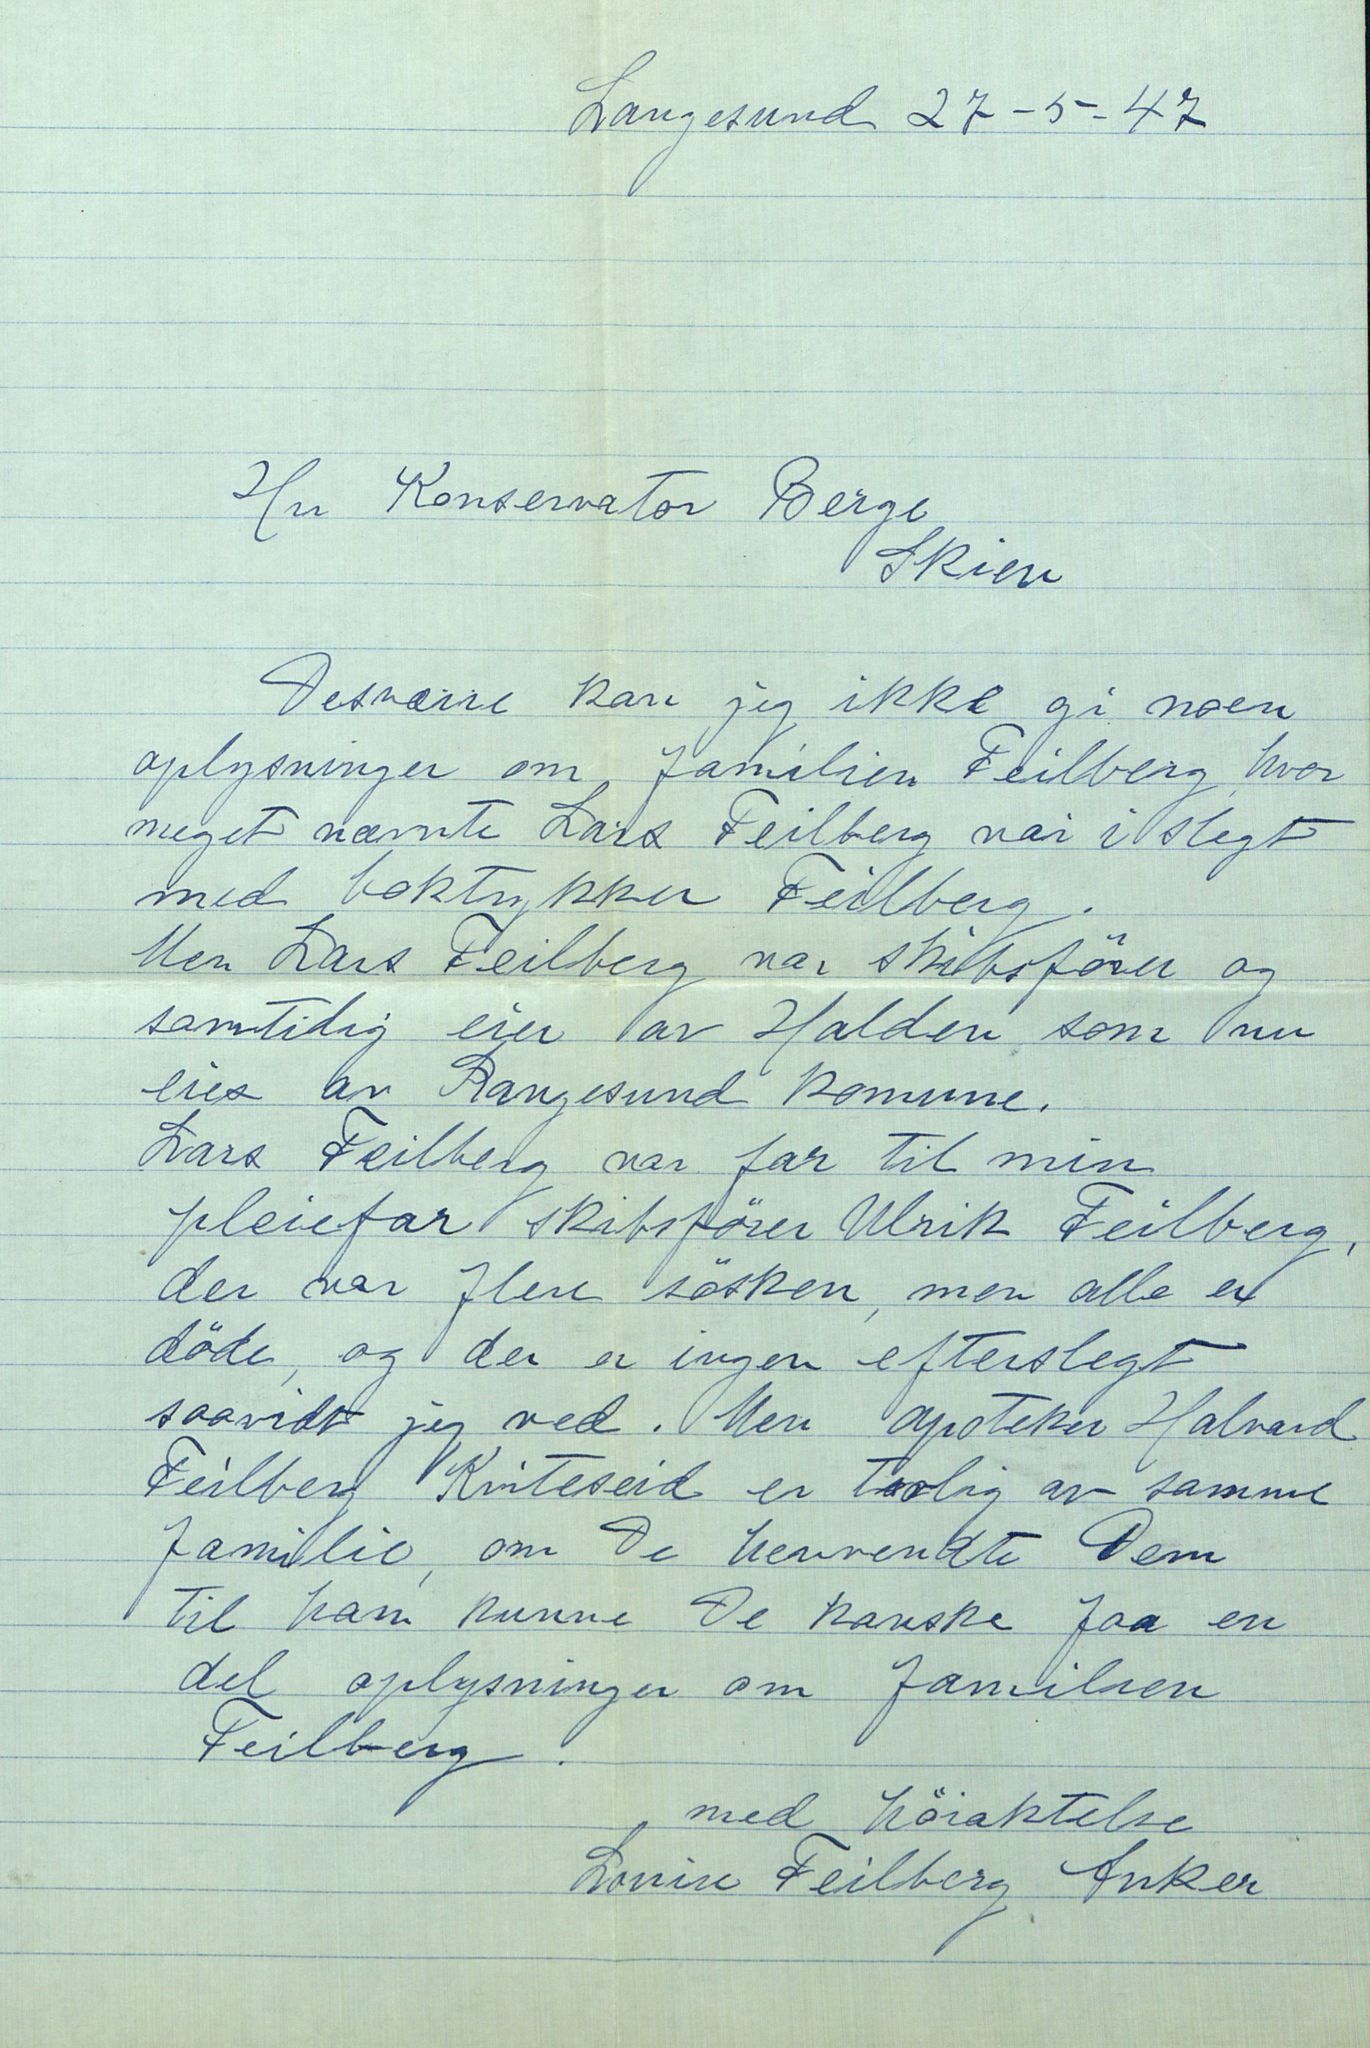 Langesund 27-5-47
Hr Konservator Berge
Skien
Desværre kan jeg ikke gi noen
oplysninger om familien Feilberg, hvor
meget nævnte Lars Feilberg var i slegt
med boktrykker Feilberg.
Men Lars Feilberg var skibsförer og
samtidig eier av Halden som nu
eies av Langesund komune.
Lars Feilberg var far til min
pleiefar skibsförer Ulrik Feilberg,
der var flere sösken, men alle er
döde, og der er ingen efterslegt
saavidt jeg ved. Men apoteker Halvard
Feilberg Kviteseid er trolig av samme
familie, om De henvendte Dem
til ham kunne De kanske faa en
del oplysninger om familien
Feilberg.
med höiaktelse
Louise Feilberg Anker